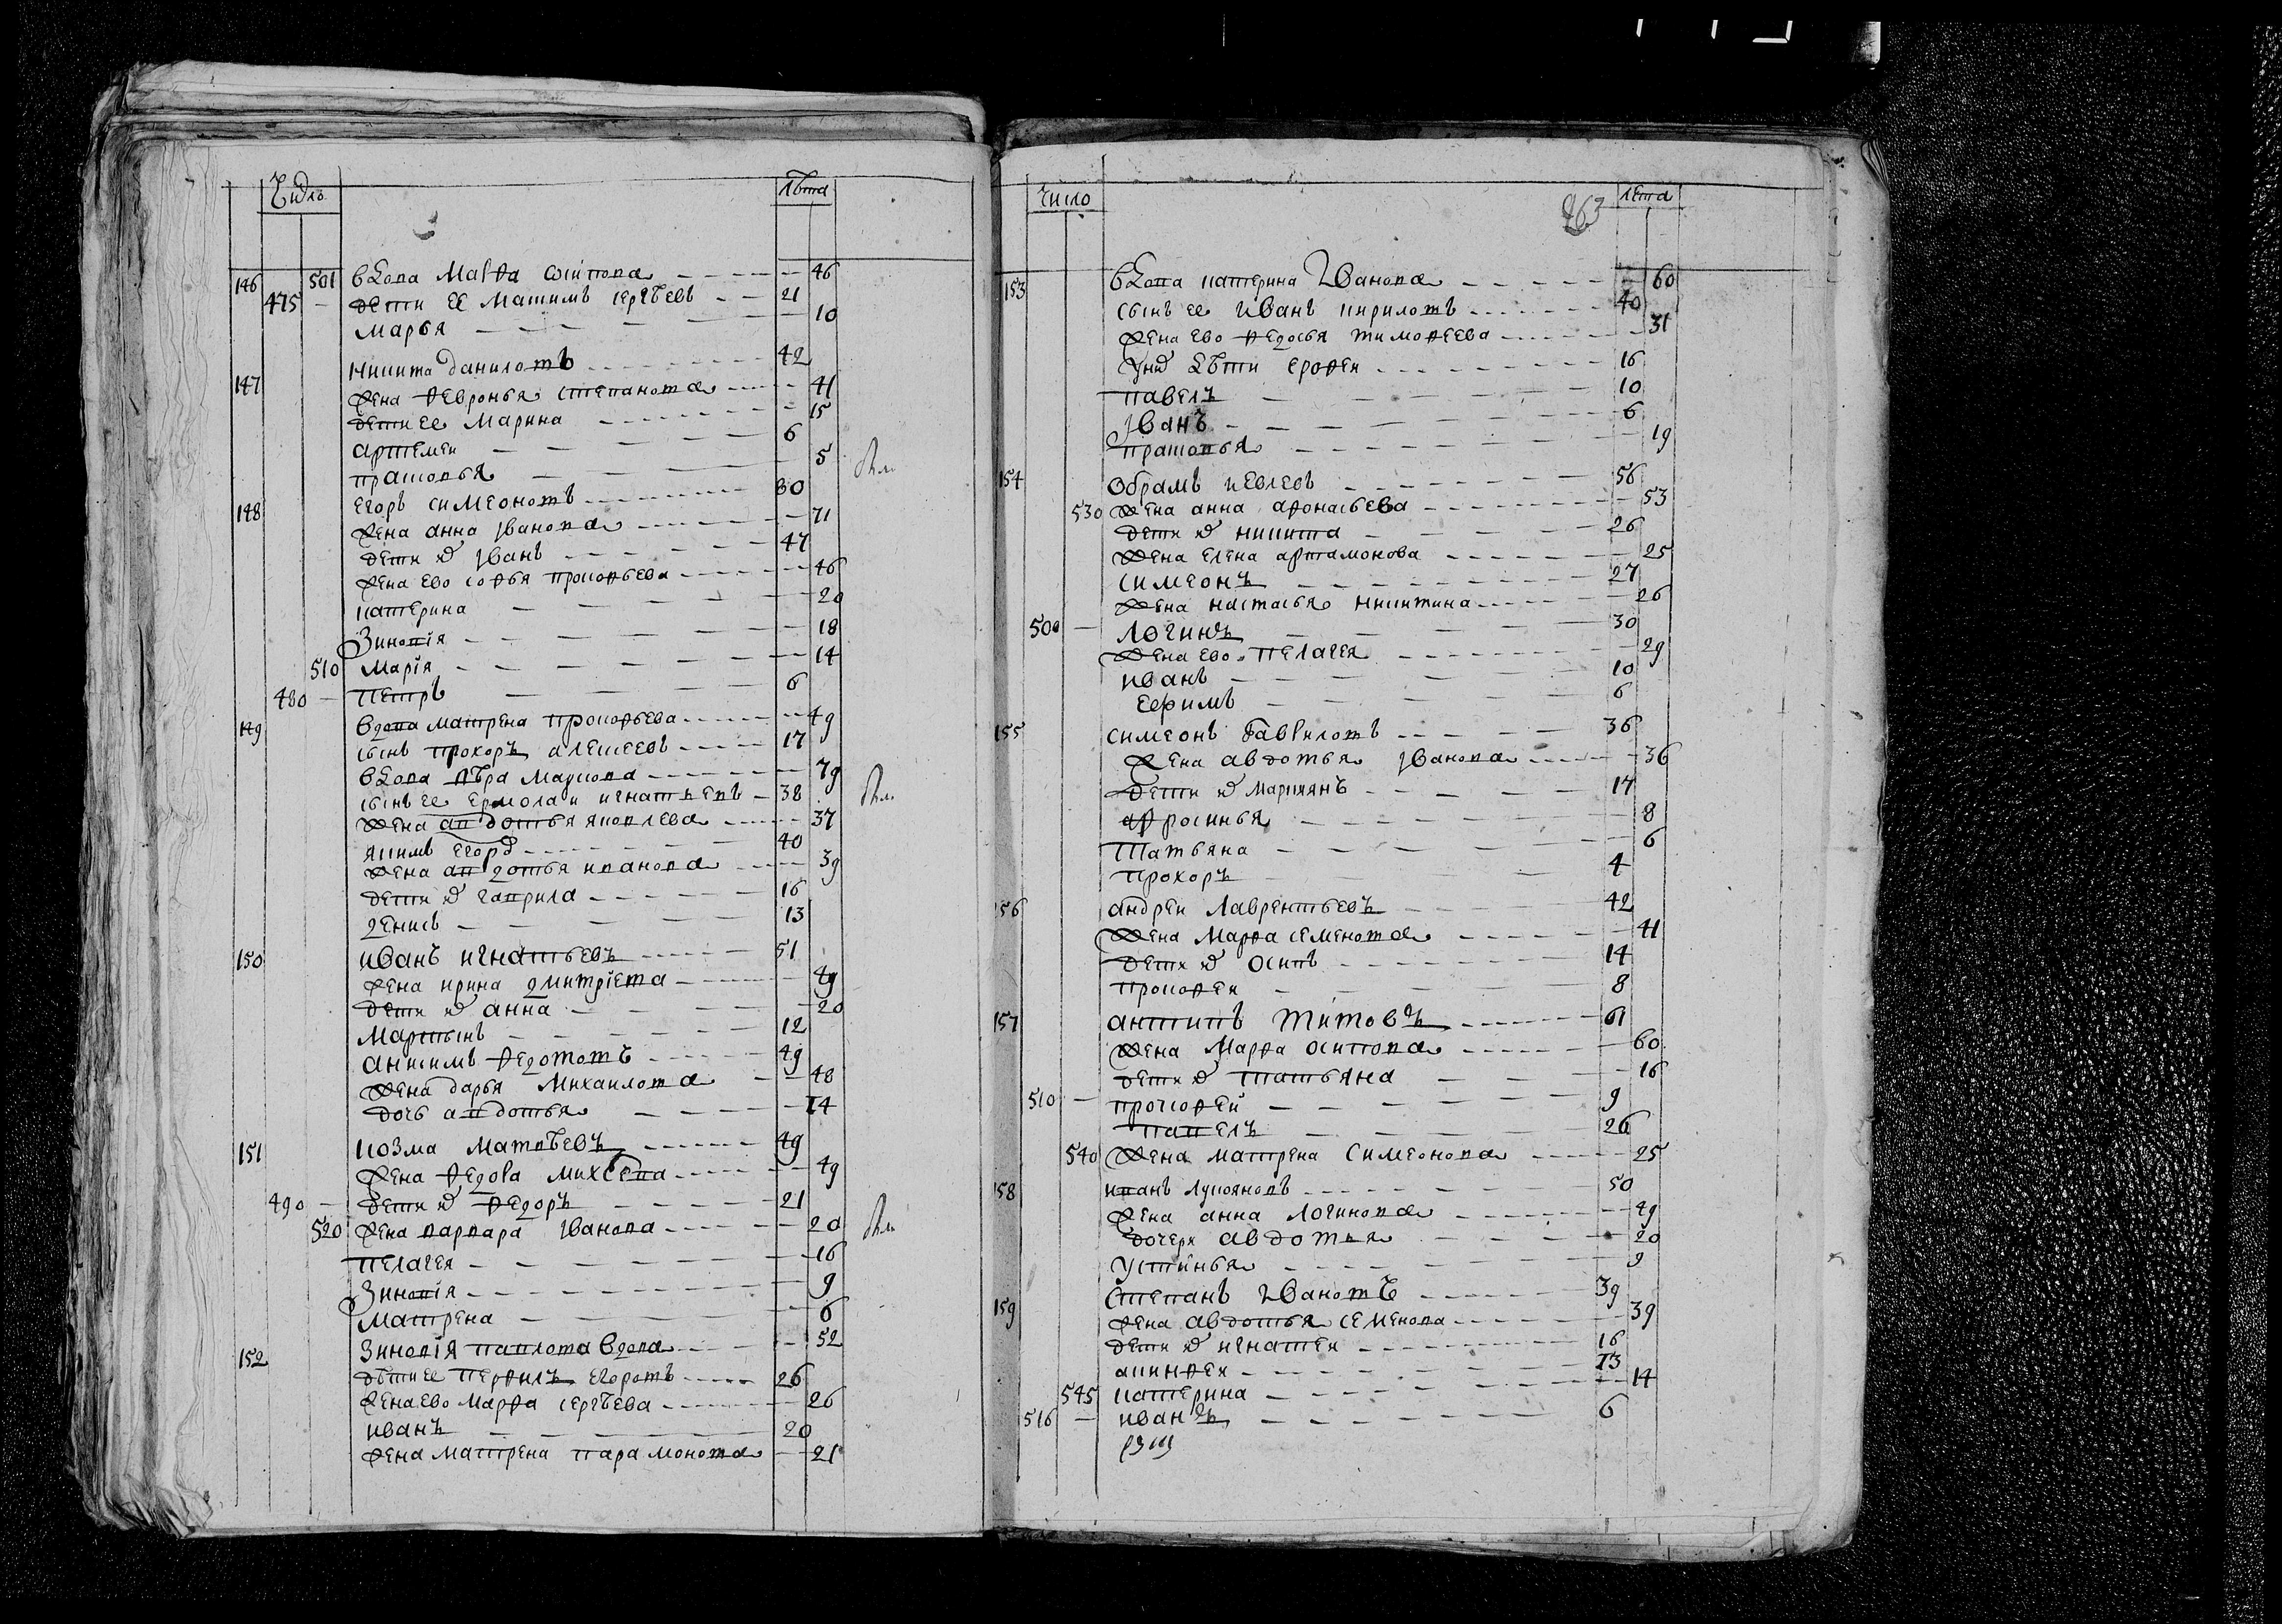 Число
Лѣта
146 501 вдова Марфа Осипова 46
475 дети ее Маѯимъ Сергѣевъ 21
Марья 10
147 Никита Даниловъ 42
жена Февронья Степанова 41
дети ее Марина 15
Артемеи 6
Прасковья 5
148 Егоръ Симеоновъ 80
жена Анна Иванова 71
дети их Иванъ 47
жена ево Софья Прокофьева 46
Катерина 20
Зиновія 18
510 Марія 14
480 Петръ 6
149 вдова Матрена Прокофьева 49
сынъ Прохоръ Алексеевъ 17
вдова Вѣра Маркова 79
сынъ ее Ермолаи Игнатьевъ 38
жена Авдотья Яковлева 37
Якимъ Егоръ 40
жена Авдотья Иванова 39
дети их Гаврила 16
Денисъ 13
150 Иванъ Игнатьевъ 51
жена Ирина Дмитріева 49
дети их Анна 20
Мартынъ 12
Анисимъ Федотовъ 49
жена Дарья Михаилова 48
дочь Авдотья 14
151 Козма Матвѣевъ 49
жена Федора Михеева 49
490 дети их Федоръ 21
520 жена Варвара Иванова 20
Пелагея 16
Зиновія 9
Матрена 6
152 Зиновія Павлова вдова 52
дѣти ее Перфилъ Егоровъ 26
жена ево Марфа Сергѣева 26
Иванъ 20
жена Матрена Парамонова 21
Число
263
Лета
153 вдова Катерина Иванова 60
сынъ ее Иванъ Кириловъ 40
жена ево Федосья Тимофеева 31
у них дѣти Ерофеи 16
Павелъ 10
Иванъ 6
Прасковья 19
154 Обрамъ Иевлевъ 56
530 жена Анна Афонасьева 53
дети их Никита 26
жена Елена Артамонова 25
Симеонъ 27
жена Настасья Никитина 26
500 Логинъ 30
жена ево Пелагея 29
Иванъ 10
Ефимъ 6
155 Симеонъ Гавриловъ 36
жена Авдотья Иванова 36
дети их Маркиянъ 17
Афросинья 8
Татьяна 6
Прохоръ 4
156 Андреи Лаврентьевъ 42
жена Марфа Семенова 41
дети их Осипъ 14
Прокофеи 8
157 Антипъ Титовъ 61
жена Марфа Осипова 60
дети их Татьяна 16
510 Прокофей 9
Павелъ 26
540 жена Матрена Симеонова 25
158 Иванъ Лукояновъ 50
жена Анна Логинова 49
дочери Авдотья 20
Устинья 9
159 Степанъ Ивановъ 39
жена Авдотья Семенова 39
дети их Игнатеи 16
Акинфеи 13
545 Катерина 14
516 Иванъ 6